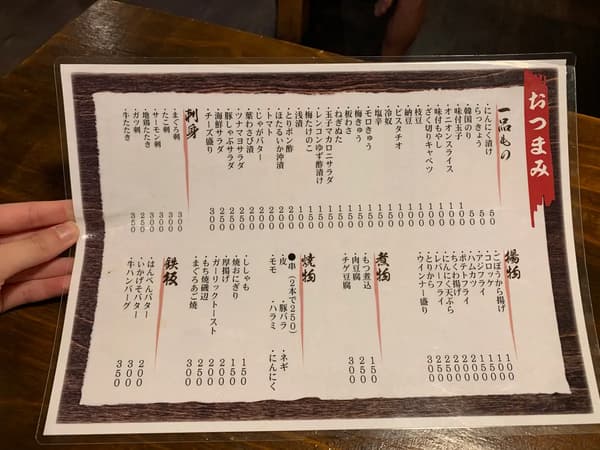 おつまみ
一品もの
・にんにく漬け
・らっきょう
・韓国のり
・味付玉子
・オニオンスライス
・味付もやし
・ざく切りキャベツ
・枝豆
・納豆
・ピスタチオ
・冷奴
・塩辛
・モロきゅう
・梅きゅう
・板わさ
・ねぎぬた
・玉子マカロニサラダ
・レンコンゆず酢漬け
・梅たけのこ
・浅漬
・とりポン酢
・ほたるいか沖漬
・トマト
・じゃがバター
・葉わさび漬
・ツナマヨサラダ
・豚しゃぶサラダ
・海鮮サラダ
・チーズ盛り
刺身
・まぐろ刺
・たこ刺
・サーモン刺
・地鶏たたき
・ガツ刺
・牛たたき
揚物
・ごぼうから揚げ
・コロッケ
・アジフライ
・ハムカツ
・ポテトフライ
・ちくわ揚げ
・にんにく天ぷら
・レバーフライ
・とりから
・ウインナー盛り
煮物
・もつ煮込 150
・肉豆腐 250
・チゲ豆腐
焼物
●串(2本で250)
・皮 ・豚バラ ・ネギ
・モモ ・ハラミ ・にんにく
・ししゃも 150
・焼おにぎり 150
・厚揚げ 200
・ガーリックトースト 200
・もち焼磯辺 250
・まぐろあご焼 350
鉄板
・はんぺんバター 200
・いかげそバター 300
・牛ハンバーグ 350